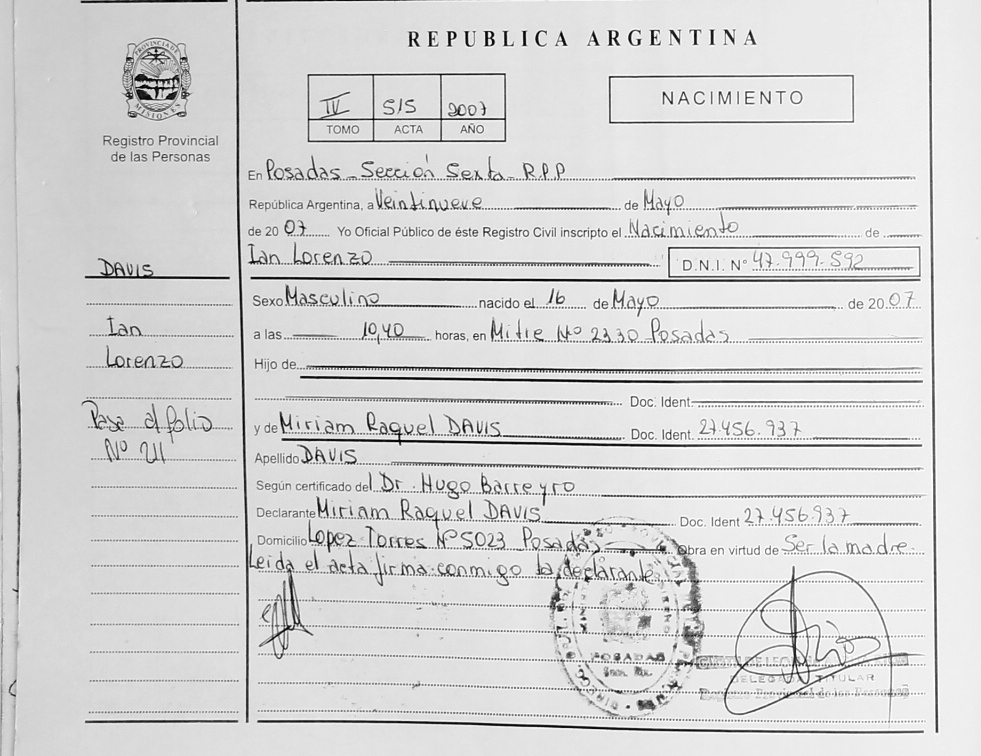 REPUBLICA ARGENTINA
PROVINCIA DE MISIONES
Registro Provincial
de las Personas
IV 515 2007
TOMO ACTA AÑO
NACIMIENTO
En Posadas - Sección Sexta - R.P.P
República Argentina, a Veintinueve de Mayo
de 20 07 Yo Oficial Público de éste Registro Civil inscripto el Nacimiento de
Ian Lorenzo D.N.I. Nº 47.999.592
DAVIS
Ian
Lorenzo
Pase al folio
Nº 211
Sexo Masculino nacido el 16 de Mayo de 20 07
a las 10,40 horas, en Mitre Nº 2330 Posadas
Hijo de
Doc. Ident.
y de Miriam Raquel DAVIS Doc. Ident. 27.456.937
Apellido DAVIS
Según certificado del Dr. Hugo Barreyro
Declarante Miriam Raquel DAVIS Doc. Ident 27.456.937
Domicilio Lopez Torres Nº 5023 Posadas Obra en virtud de Ser la madre.
Leida el acta firma conmigo la declarante.
POSADAS
TITULAR
Registro Provincial de las Personas